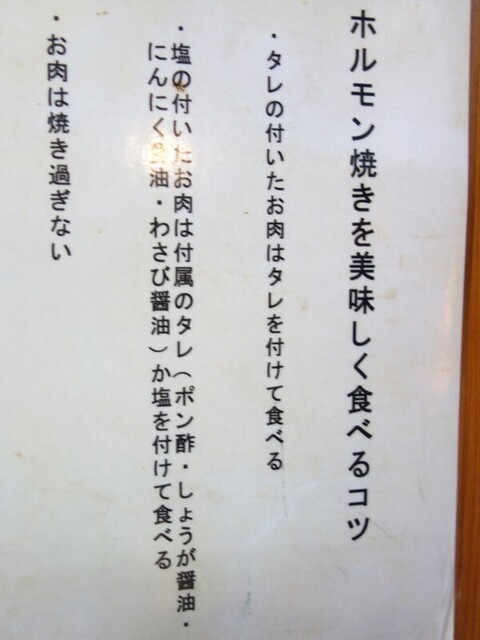 ホルモン焼きを美味しく食べるコツ
・タレの付いたお肉はタレを付けて食べる
・塩の付いたお肉は付属のタレ(ポン酢・しょうが醤油・
にんにく醤油・わさび醤油)か塩を付けて食べる
・お肉は焼き過ぎない